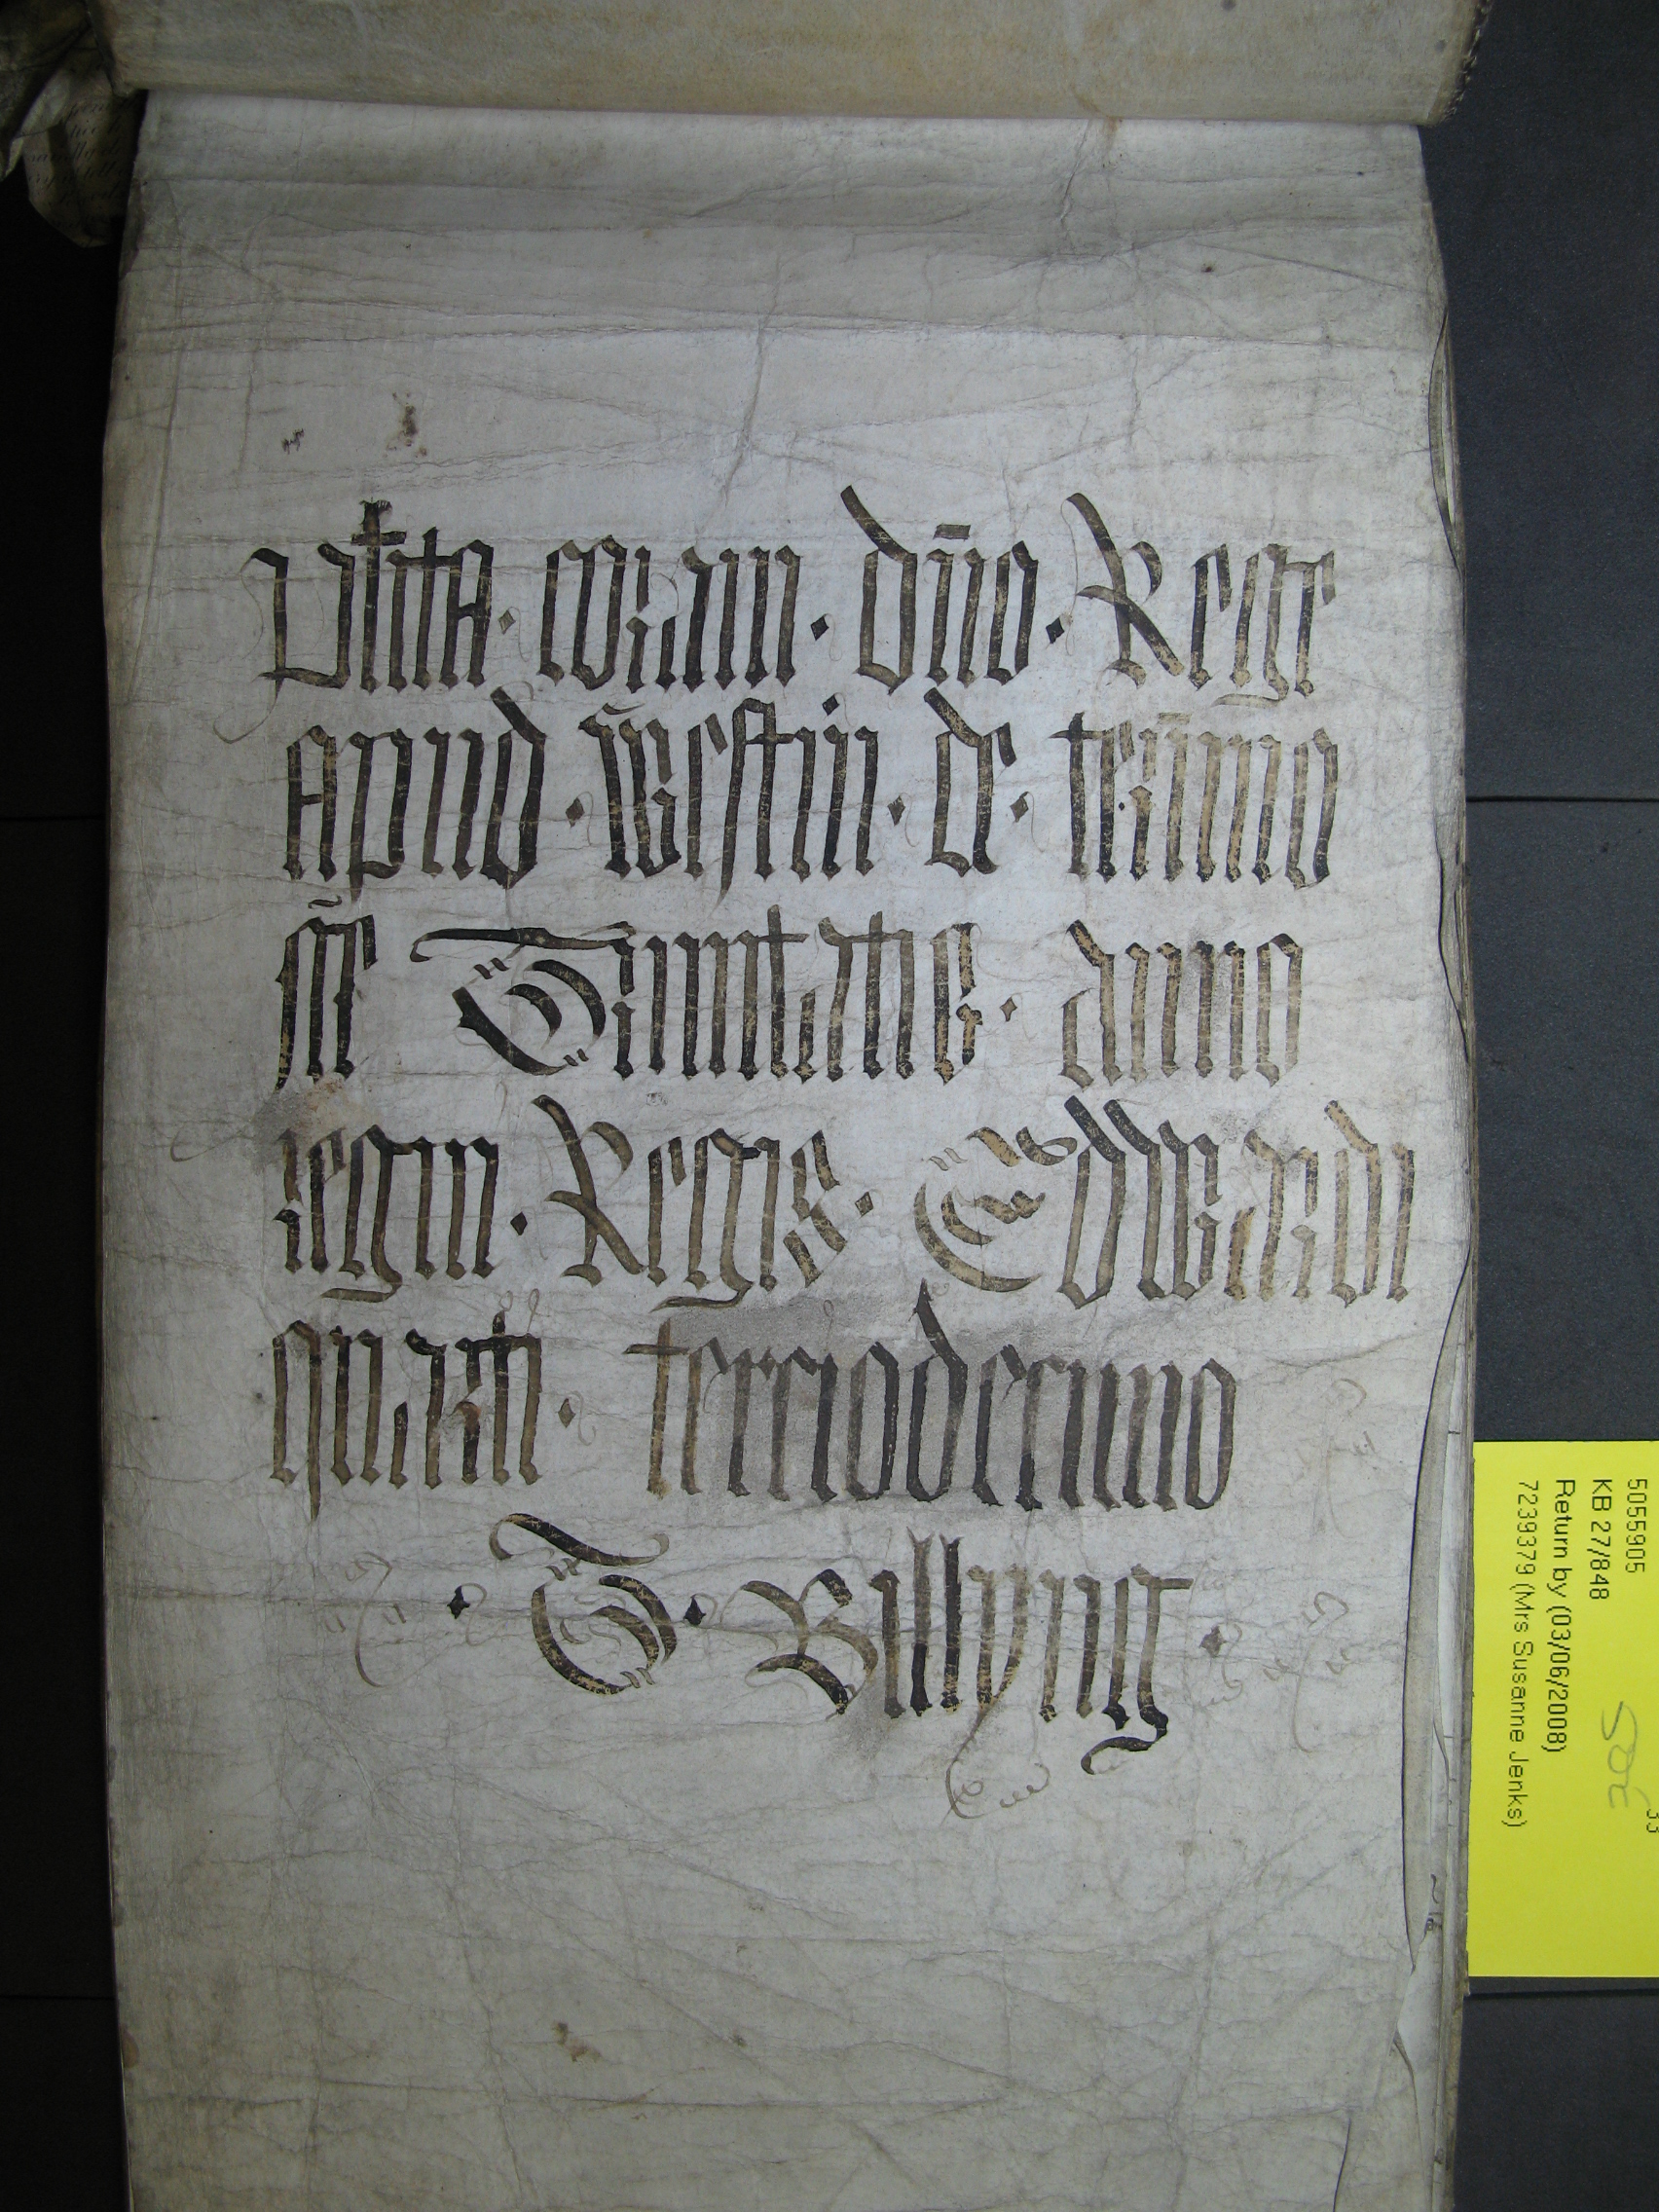 Pl̃ita · coram · dño · Rege
apud · Westm̃ · de · term̃ino
sc̃e Trinitatis · anno
regni · Regis · Edwardi
quarti · terciodecimo
· T · Billyng ·
50559905
KB 27/848
Return by (03/06/2008)
7239379 (Mrs Susanne Jenks)
33